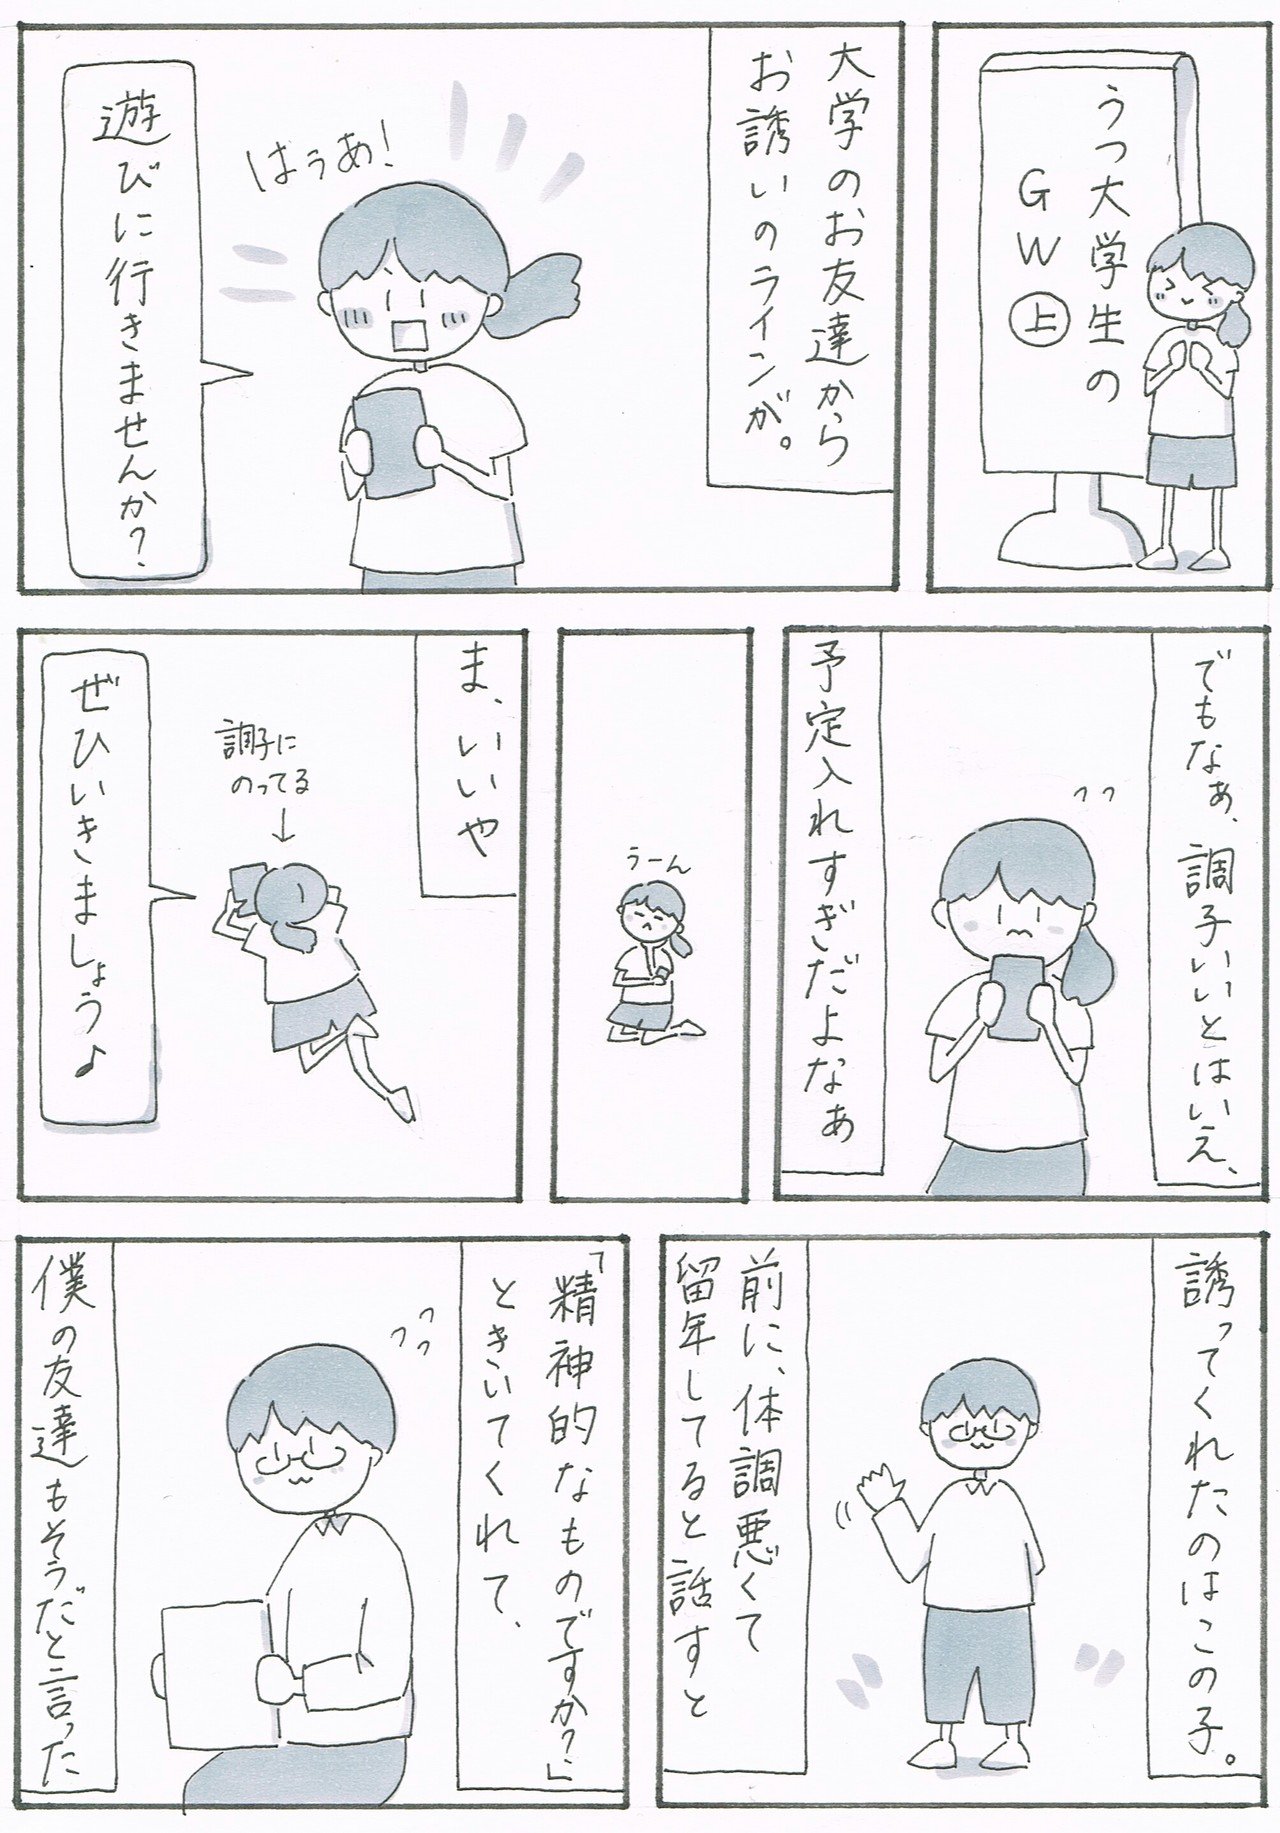 うつ大学生の
GW㊤
大学のお友達から
お誘いのラインが。
はうあ!
遊びに行きませんか?
でもなぁ、調子いいとはいえ、
予定入れすぎだよなぁ
うーん
ま、いいや
調子に
のってる
↓
ぜひいきましょう♪
誘ってくれたのはこの子。
前に、体調悪くて
留年してると話すと
「精神的なものですか?」
ときいてくれて、
僕の友達もそうだと言った